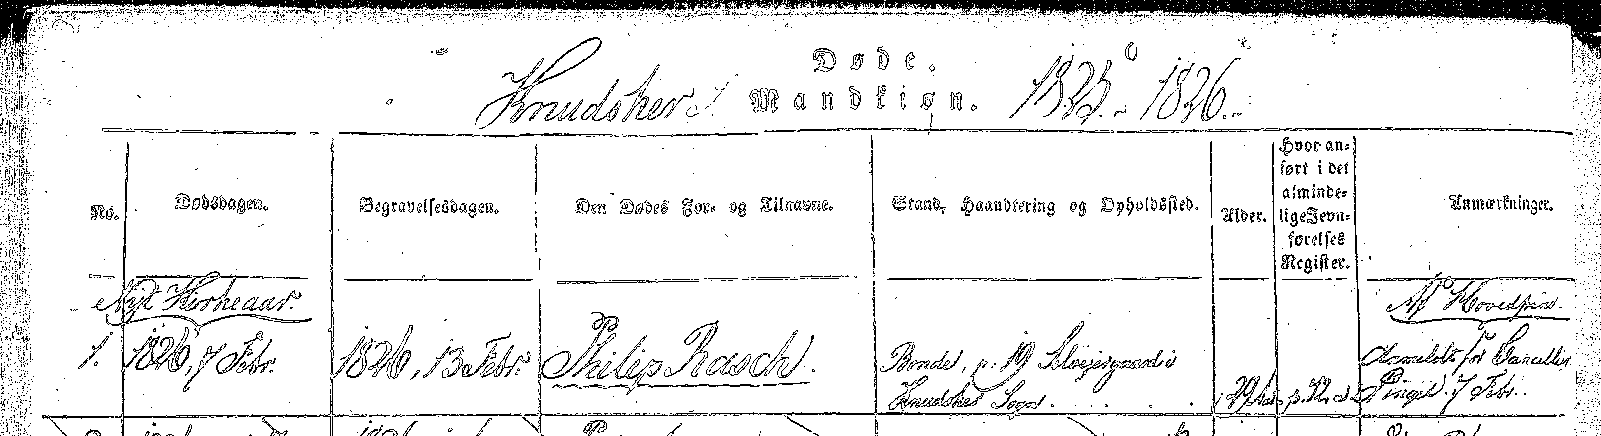 Døde.
Knudsker S. Mandkiøn. 1825 - 1826.
No.
Dødsdagen.
Begravelsesdagen.
Den Dødes For- og Tilnavne.
Stand, Haandtering og Opholdssted.
Alder.
Hvor an-
ført i det
alminde-
lige Jevn-
førelses
Register.
Anmærkninger.
Nyt Kirkeaar.
1. 1826, 7 Febr.
1826, 13 Febr.
Philip Rasch.
Bonde, p. 19
Knudsker Sogn
7 Febr.